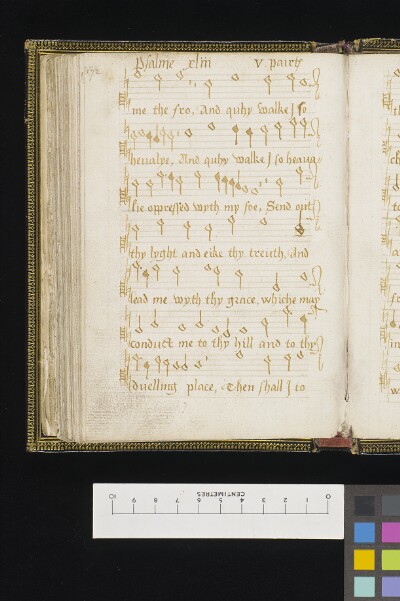 Psalme xliii v pairts
172
me the fro, And quhy walke I so
hevalye, And quhy walke I so heava
lie oppressed wyth my foe, Send out
thy lyght and eike thy treuth, And
lead me wyth thy grace, whiche may
conduct me to thy hill and to thy
duelling place, Then shall I to
CENTIMETRES
10 9 8 7 6 5 4 3 2 1 0